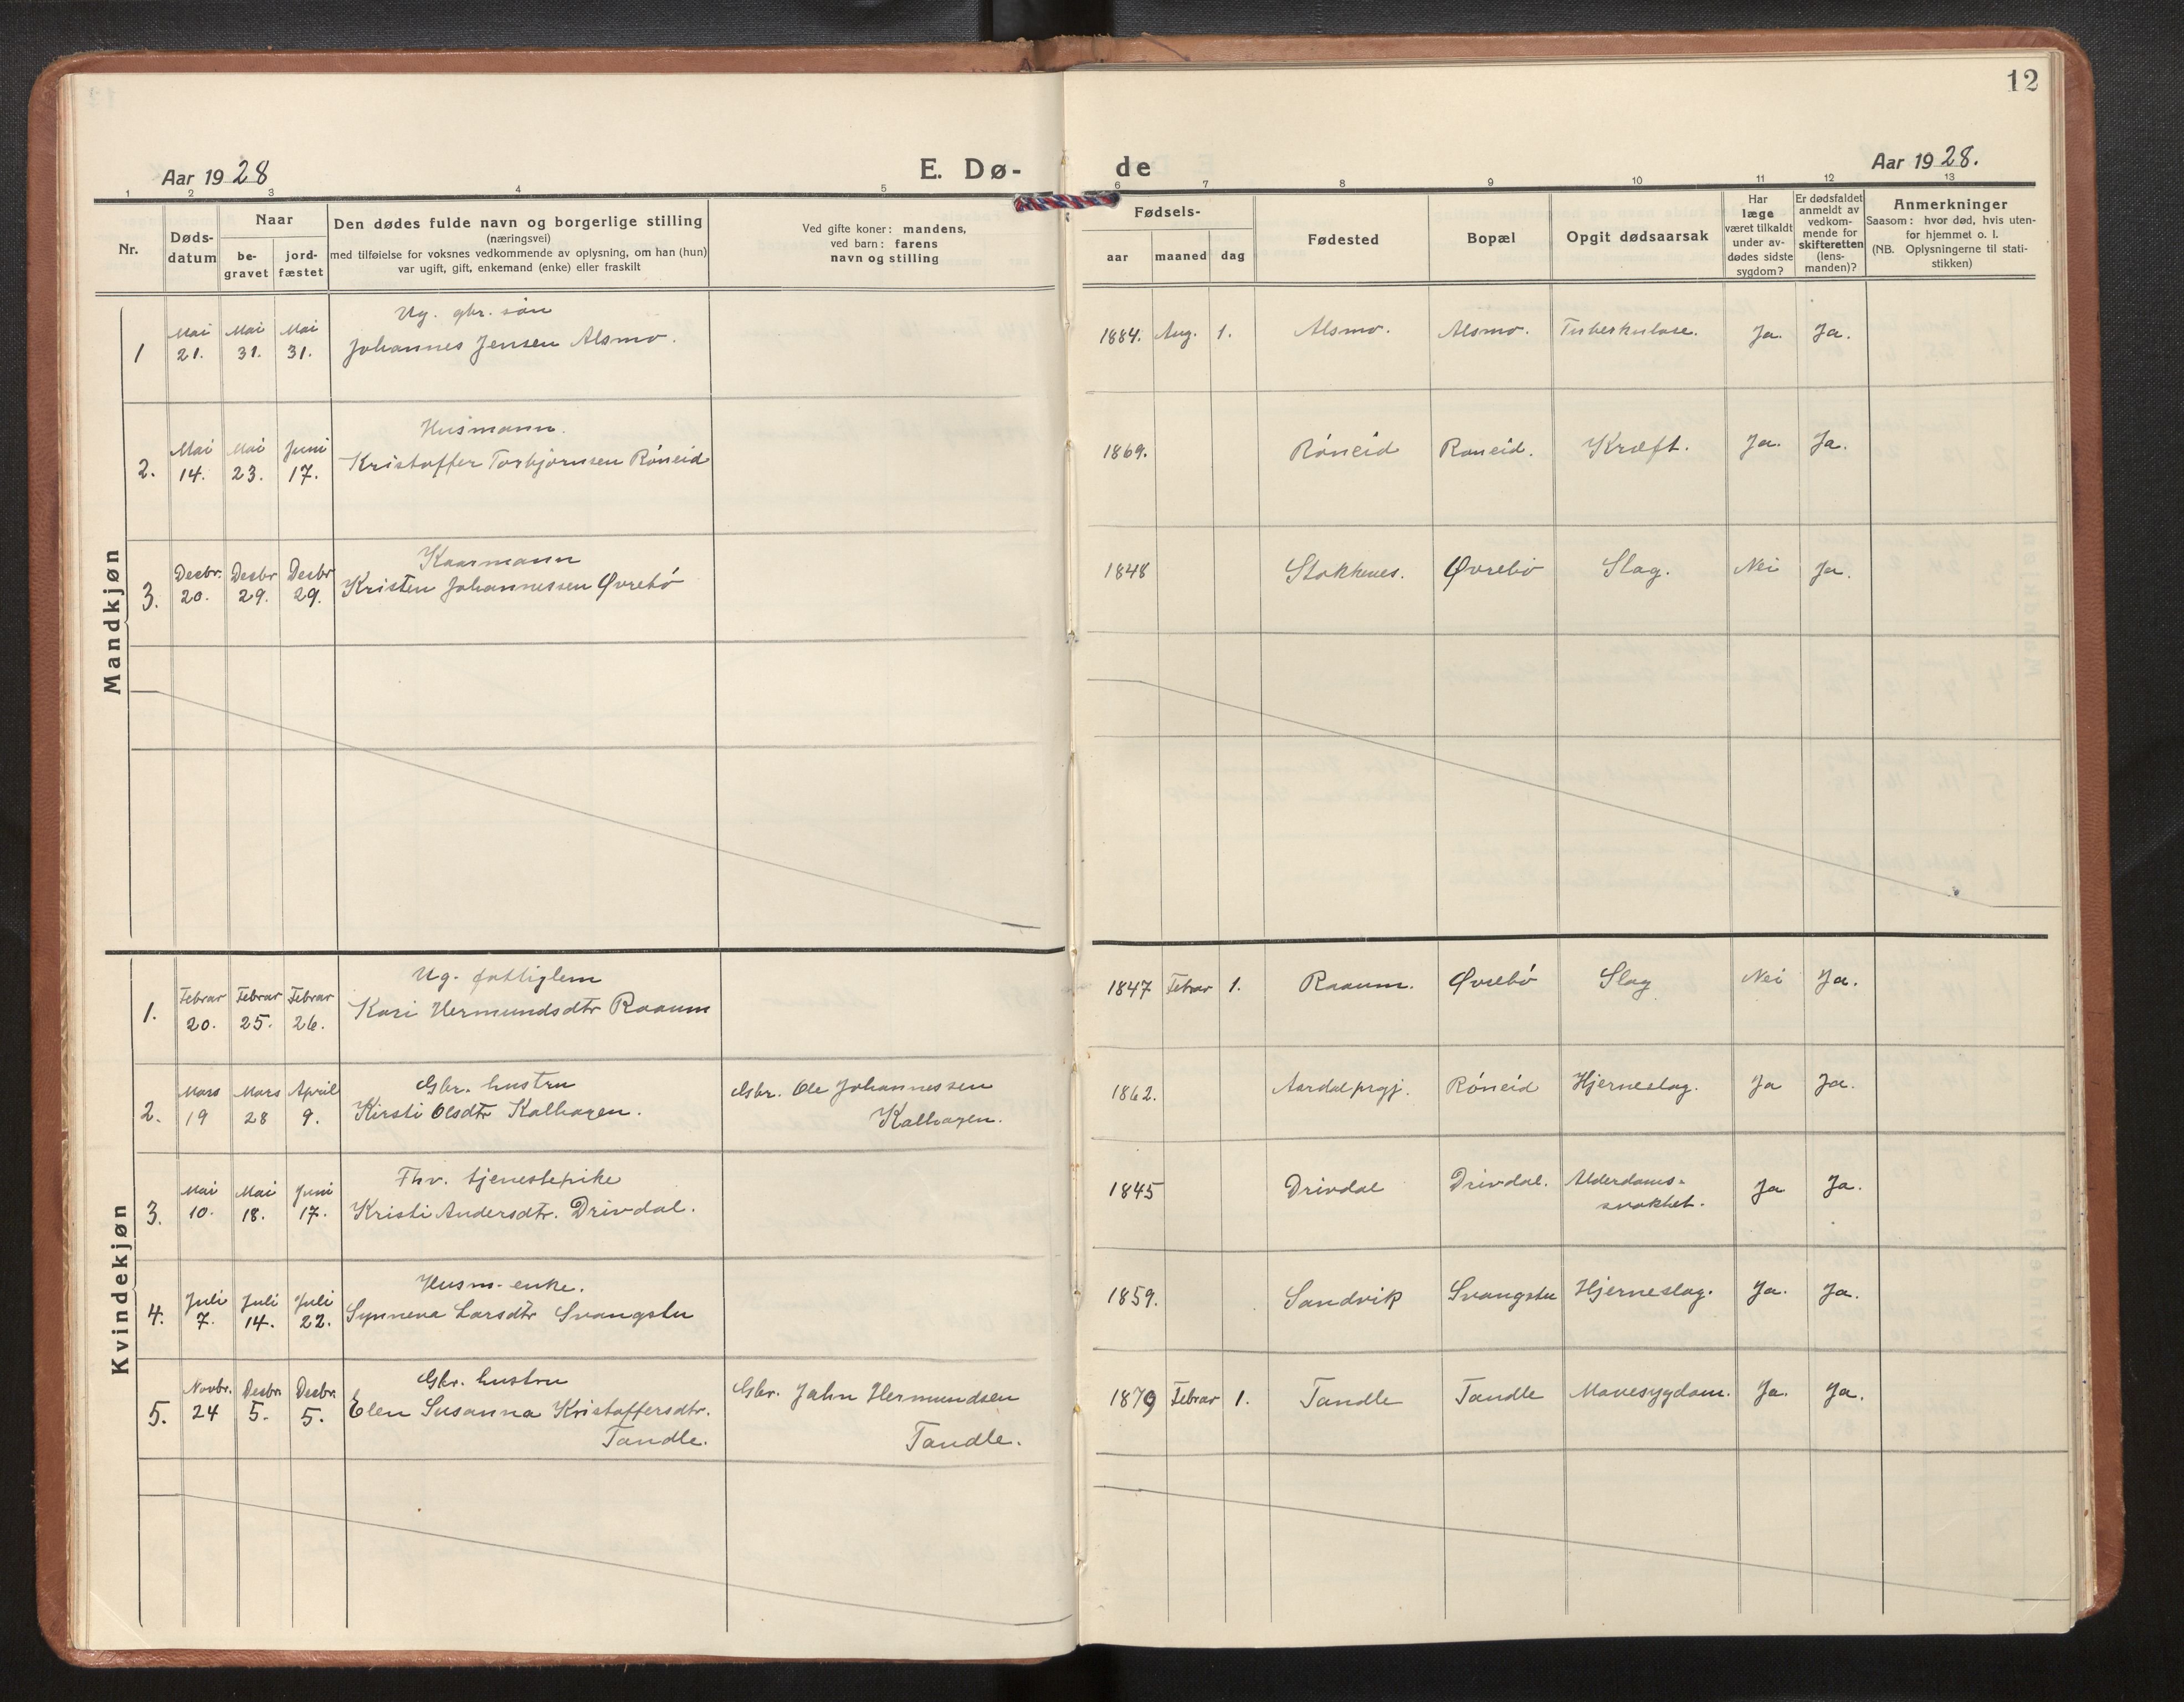 12
Aar 1928
E. Dø-
de
Aar 1928.
1 2 3 4 5 6 7 8 9 10 11 12 13
Nr.
Døds-
datum
Naar
be-
gravet
jord-
fæstet
Den dødes fulde navn og borgerlige stilling
(næringsvei)
med tilføielse for voksnes vedkommende av oplysning, om han (hun)
var ugift, gift, enkemand (enke) eller fraskilt
Ved gifte koner: mandens,
ved barn: farens
navn og stilling
Fødsels-
aar maaned dag
Fødested
Bopæl
Opgit dødsaarsak
Har
læge
været tilkaldt
under av-
dødes sidste
sygdom?
Er dødsfaldet
anmeldt av
vedkom-
mende for
skifteretten
(lens-
manden)?
Anmerkninger
Saasom: hvor død, hvis uten-
for hjemmet o. l.
(NB. Oplysningerne til stati-
stikken)
Mandkjøn
Ug. gbr. søn
Mai Mai Mai
1 21. 31. 31. Johannes Jensen Alsmo. 1884. Aug. 1. Alsmo. Alsmo. Tuberkulose. Ja. Ja.
Husmann.
Mai Mai Juni
2. 14. 23. 17. Kristoffer Torbjørnsen Røneid 1869. Røneid Røneid. Kræft. Ja. Ja.
Kaarmann
Desbr. Desbr Desbr
3. 20. 29. 29. Kristen Johannessen Øvrebó 1848 Stokkenes. Øvrebó Slag. Nei Ja.
Kvindekjøn
Ug. fattiglem
Febrar Febrar Febrar
1. 20. 25. 26. Kari Hermundsdtr Raaum 1847 Febrar 1. Raaum. Øvrebó Slag Nei Ja.
Gbr. hustru
Mars Mars April
2. 19 28 9. Kirsti Olsdtr Kalhagen. Gbr. Ole Johannessen
Kalhagen. 1862. Aardal prgj. Róneid Hjerneslag. Ja Ja.
Fhv. tjenestepike
Mai Mai Juni
3. 10. 18. 17. Kristi Andersdtr. Drivdal. 1845 Drivdal Drivdal. Alderdoms-
svakhet. Ja Ja.
Husm. enke.
Juli Juli Juli
4. 7. 14. 22. Synneva Larsdtr Svangstu 1859. Sandvik Svangstu Hjerneslag. Ja. Ja.
Gbr. hustru
Novbr. Desbr. Desbr.
5. 24 5. 5. Elen Susanna Kristoffersdtr.
Tandle. Gbr. Jahn Hermundsen
Tandle. 1879 Febrar 1. Tandle Tandle Mavesygdom. Ja. Ja.